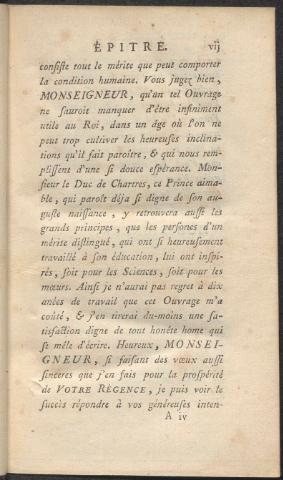 ÉPITRE. vij
consiste tout le mérite que peut comporter
la condition humaine. Vous jugez bien,
MONSEIGNEUR, qu'un tel Ouvrage
ne sauroit manquer d'être infiniment
utile au Roi, dans un âge où l'on ne
peut trop cultiver les heureuses inclina-
tions qu'il fait paroître, & qui nous rem-
plissent d'une si douce espérance. Mon-
sieur le Duc de Chartres, ce Prince aima-
ble, qui paroît déja si digne de son au-
guste naissance, y retrouvera aussi les
grands principes, que les persones d'un
mérite distingué, qui ont si heureusement
travaillé à son éducation, lui ont inspi-
rés, soit pour les Sciences, soit pour les
mœurs. Ainsi je n'aurai pas regret à dix
anées de travail que cet Ouvrage m'a
coûté, & j'en tirerai du-moins une sa-
tisfaction digne de tout honête home qui
se mêle d'écrire. Heureux, MONSEI-
GNEUR, si faisant des vœux aussi
sinceres que j'en fais pour la prospérité
de VOTRE RÉGENCE, je puis voir le
succès répondre à vos généreuses inten-
A iv